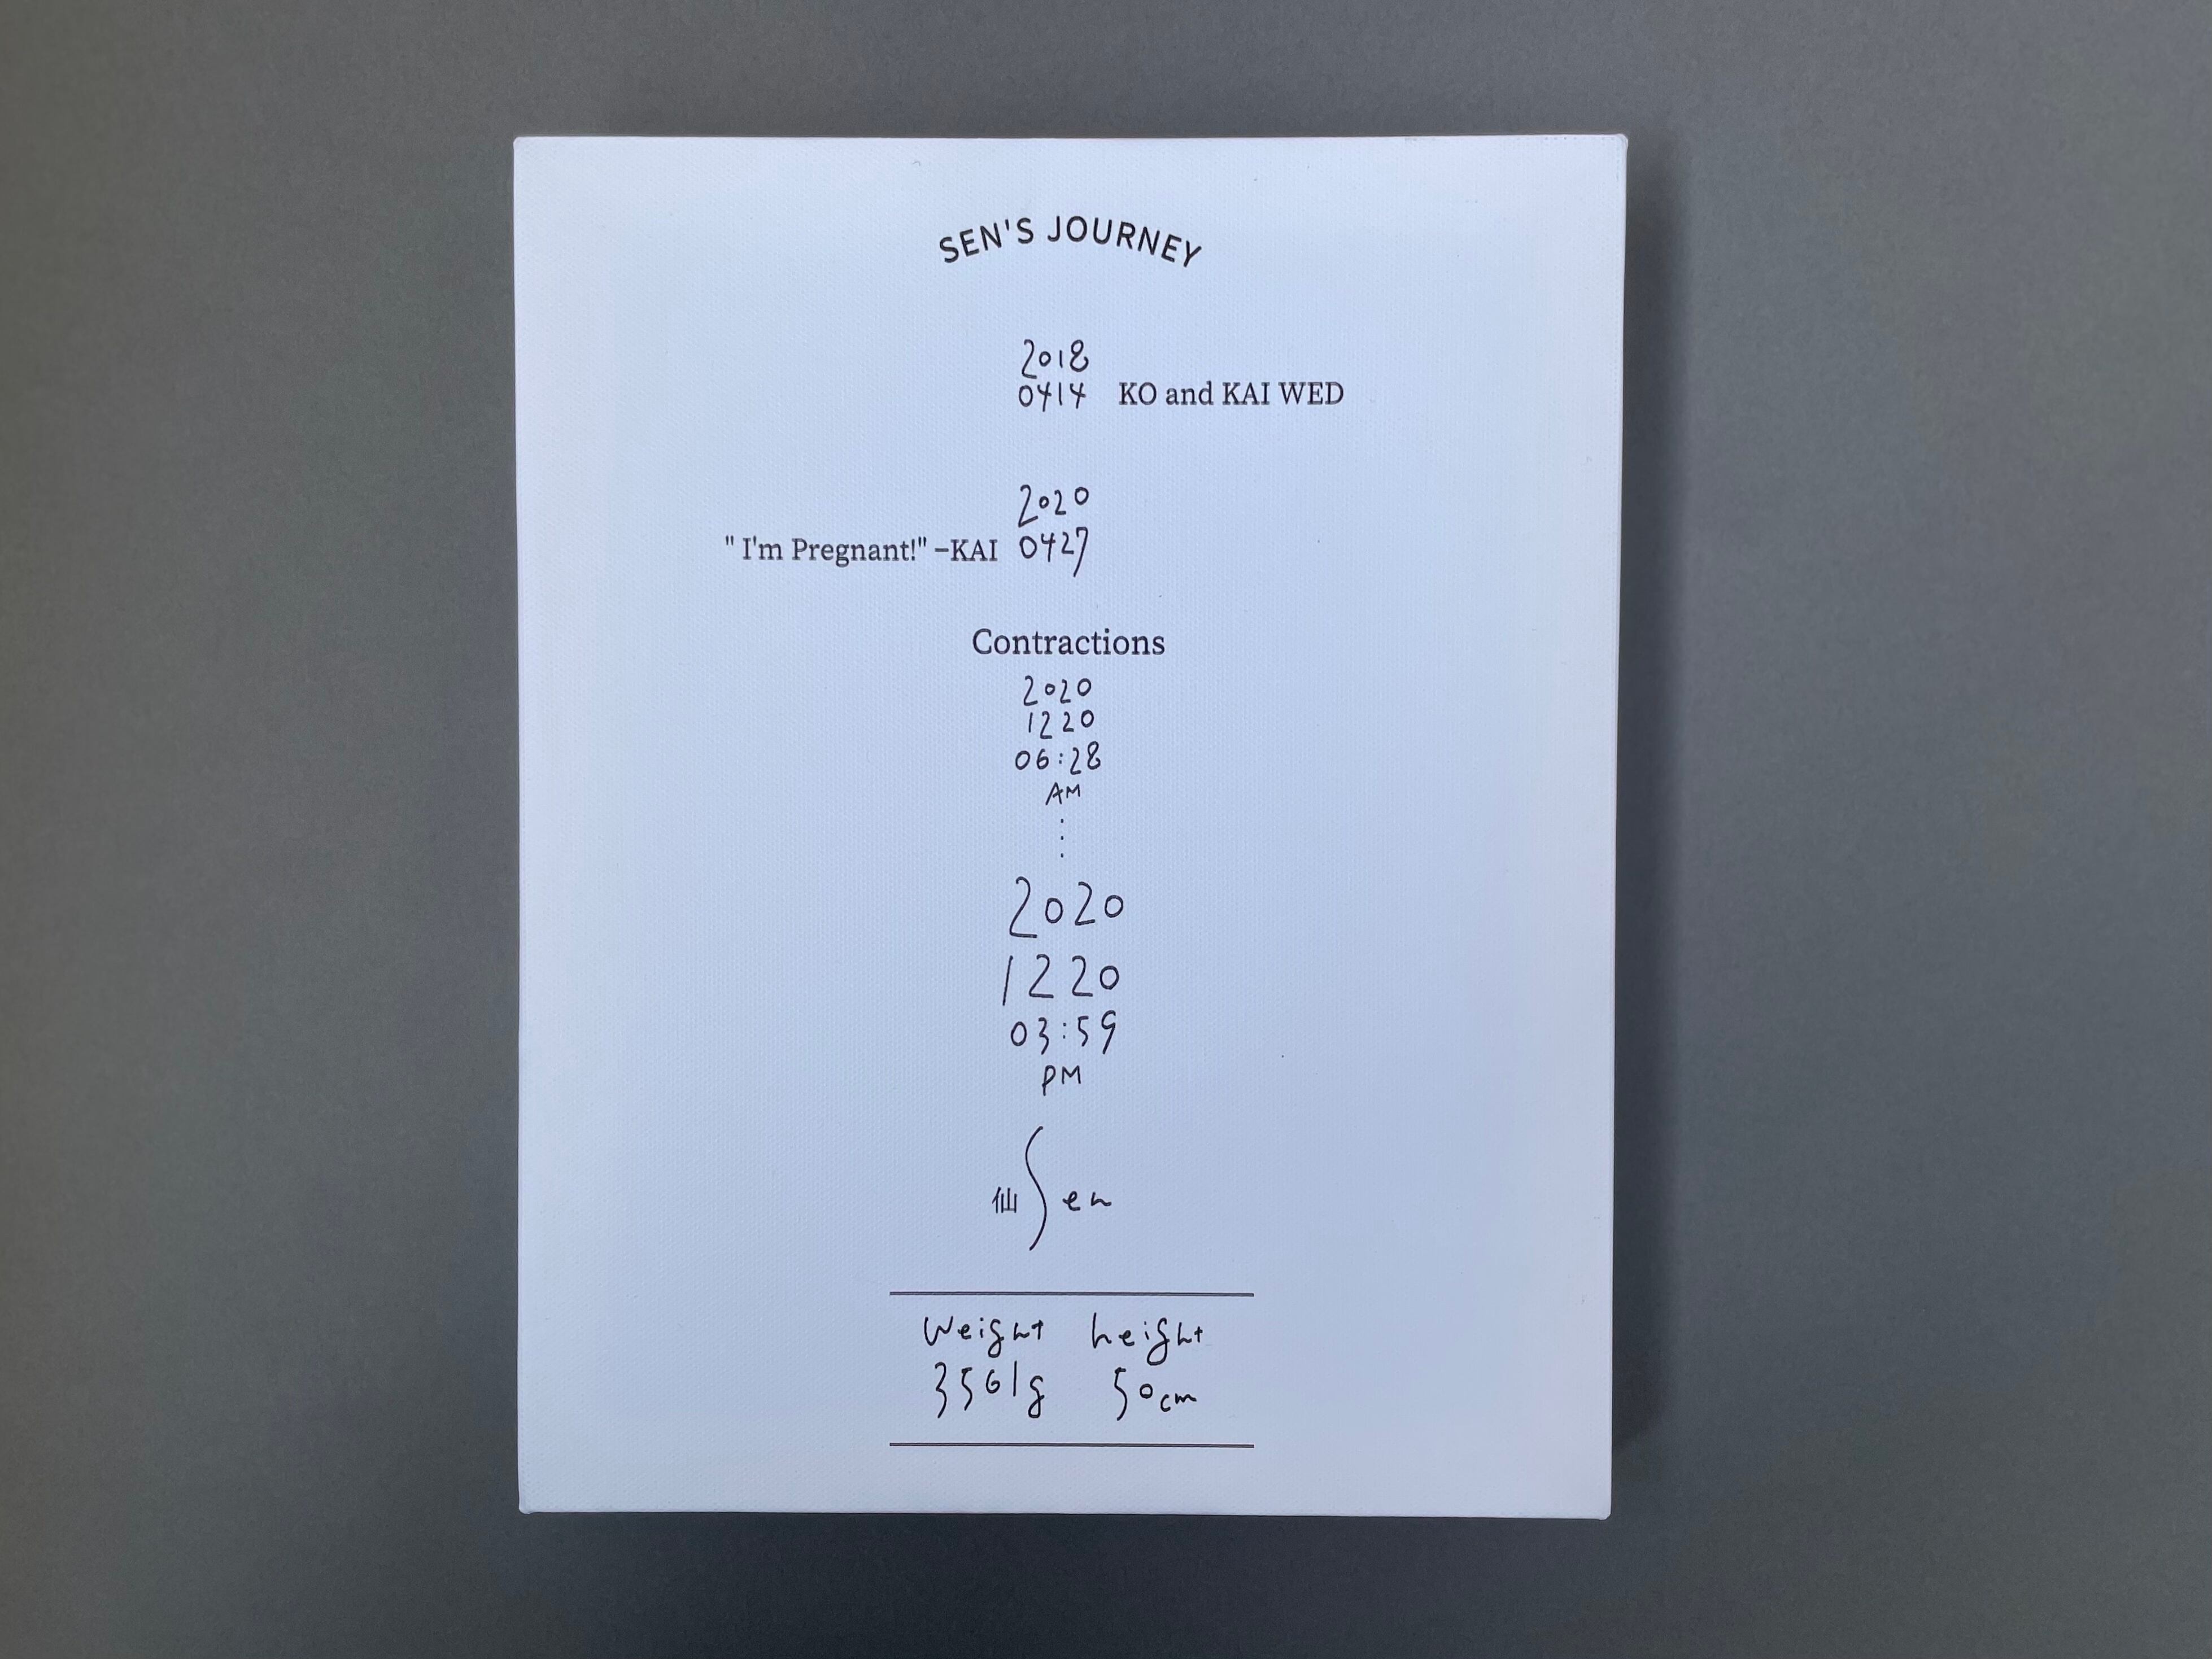 SEN'S JOURNEY
2018
0414 KO and KAI WED
2020
" I'm Pregnant!" –KAI 0427
Contractions
2020
1220
06:28
AM
2020
1220
03:59
PM
仙 Sen
Weight height
3561g 50cm